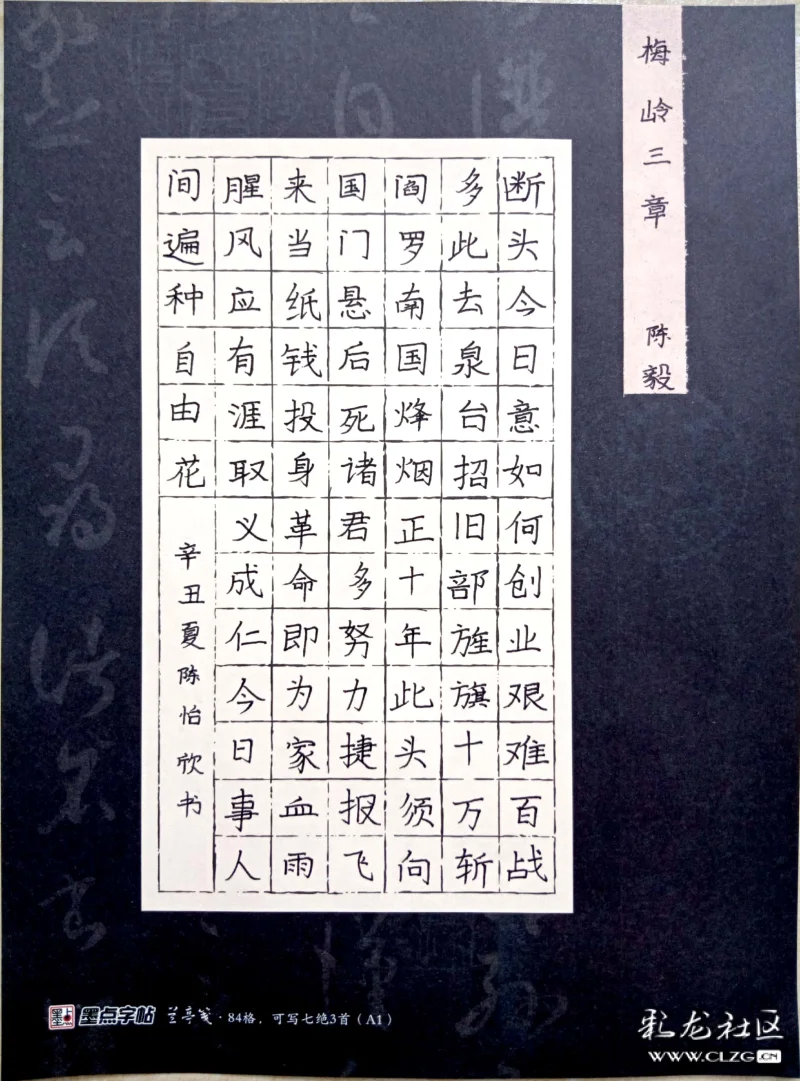 梅岭三章 陈毅
断头今日意如何创业艰难百战
多此去泉台招旧部旌旗十万斩
阎罗南国烽烟正十年此头须向
国门悬后死诸君多努力捷报飞
来当纸钱投身革命即为家血雨
腥风应有涯取义成仁今日事人
间遍种自由花
辛丑夏陈怡欣书
墨点字帖 兰亭笺·84格，可写七绝3首（A1）
彩龙社区
WWW.CLZG.CN